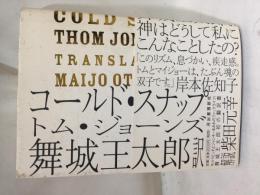 COLD S
THOM JO
TRANSLA
MAIJO OT
神はどうして私に
こんなことしたの?
「このリズム、息づかい、疾走感。
トムとマイジョーは、たぶん魂の
双子です。」岸本佐知子
コールド・スナップ
トム・ジョーンズ
舞城王太郎 訳
柴田元幸